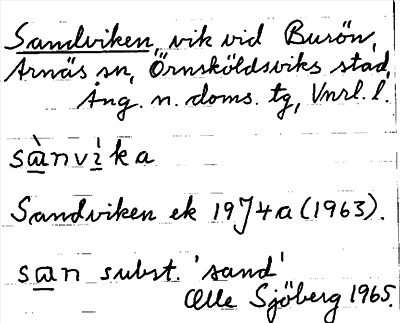 Sandviken, vik vid Burön,
Arnäs sn, Örnsköldsviks stad,
Ång. n. doms. tg, Vnrl. l.
sànvìka
Sandviken ek 19J4a (1963).
san subst. 'sand'
Olle Sjöberg 1965.